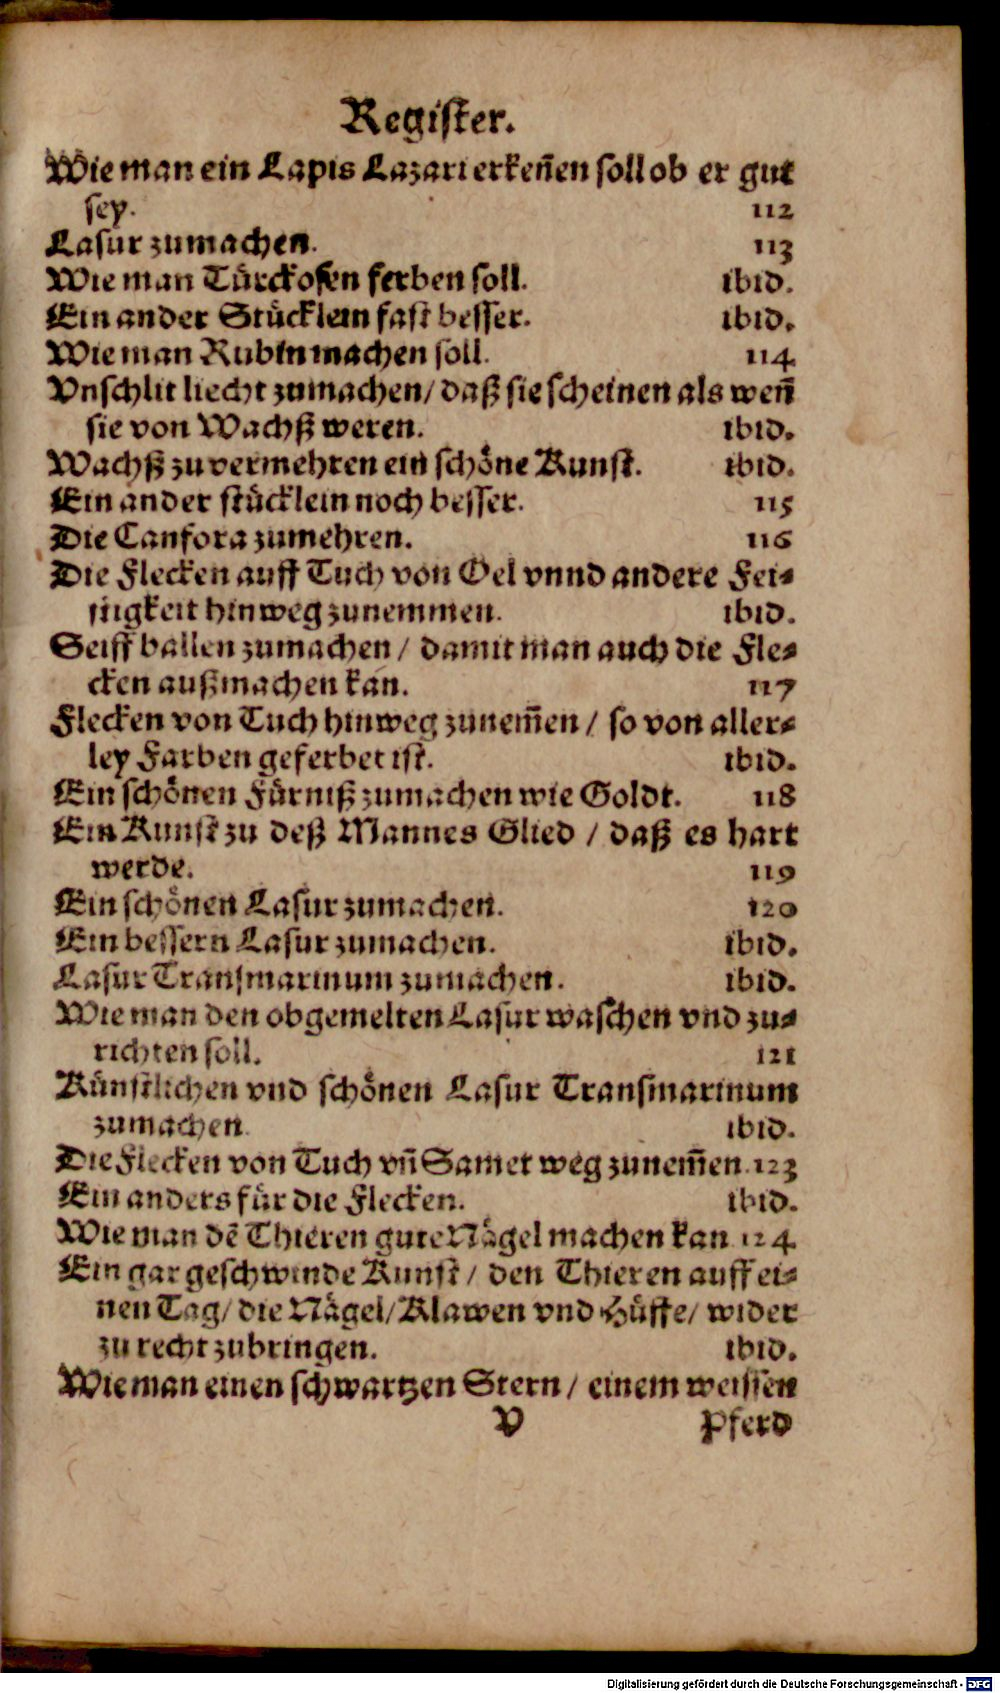 Register.
Wie man ein Lapis Lazari erkeñen soll ob er gut
sey. 112
Lasur zumachen. 113
Wie man Türckosen ferben soll. ibid.
Ein ander Stücklein fast besser. ibid.
Wie man Rubin machen soll. 114
Vnschlit liecht zumachen/ daß sie scheinen als weñ
sie von Wachß weren. ibid.
Wachß zu vermehren ein schöne Kunst. ibid.
Ein ander stücklein noch besser. 115
Die Canfora zumehren. 116
Die Flecken auff Tuch von Oel vnnd andere Fei-
stigkeit hinweg zunemmen. ibid.
Seiff ballen zumachen / damit man auch die Fle-
cken außmachen kan. 117
Flecken von Tuch hinweg zunem̃en / so von aller-
ley Farben geferbet ist. ibid.
Ein schönen Fürniß zumachen wie Goldt. 118
Ein Kunst zu deß Mannes Glied / daß es hart
werde. 119
Ein schönen Lasur zumachen. 120
Ein bessern Lasur zumachen. ibid.
Lasur Transmarinum zumachen. ibid.
Wie man den obgemelten Lasur waschen vnd zu-
richten soll. 121
Künstlichen vnd schönen Lasur Transmarinum
zumachen. ibid.
Die Flecken von Tuch vñ Samet weg zunem̃en. 123
Ein anders für die Flecken. ibid.
Wie man dẽ Thieren gute Nägel machen kan. 124
Ein gar geschwinde Kunst / den Thieren auff ei-
nen Tag/ die Nägel/ Klawen vnd Hüffe/ wider
zu recht zubringen. ibid.
Wie man einen schwartzen Stern / einem weissen
V Pferd
Digitalisierung gefördert durch die Deutsche Forschungsgemeinschaft - DFG